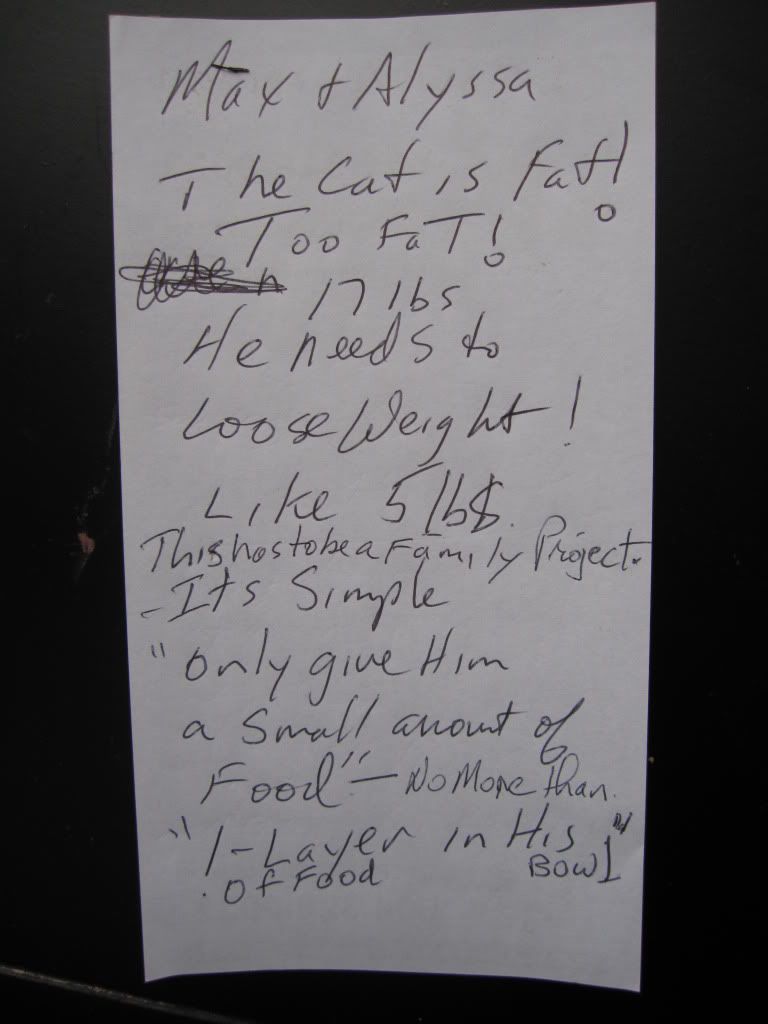 Max + Alyssa
The Cat is Fat!
Too FaT!
17 lbs
He needs to
Loose Weight!
Like 5 lbs.
This has to be a Family Project.
- Its Simple
"only give Him
a small amount of
Food" - No More than
"1-Layer in His
of Food Bowl"